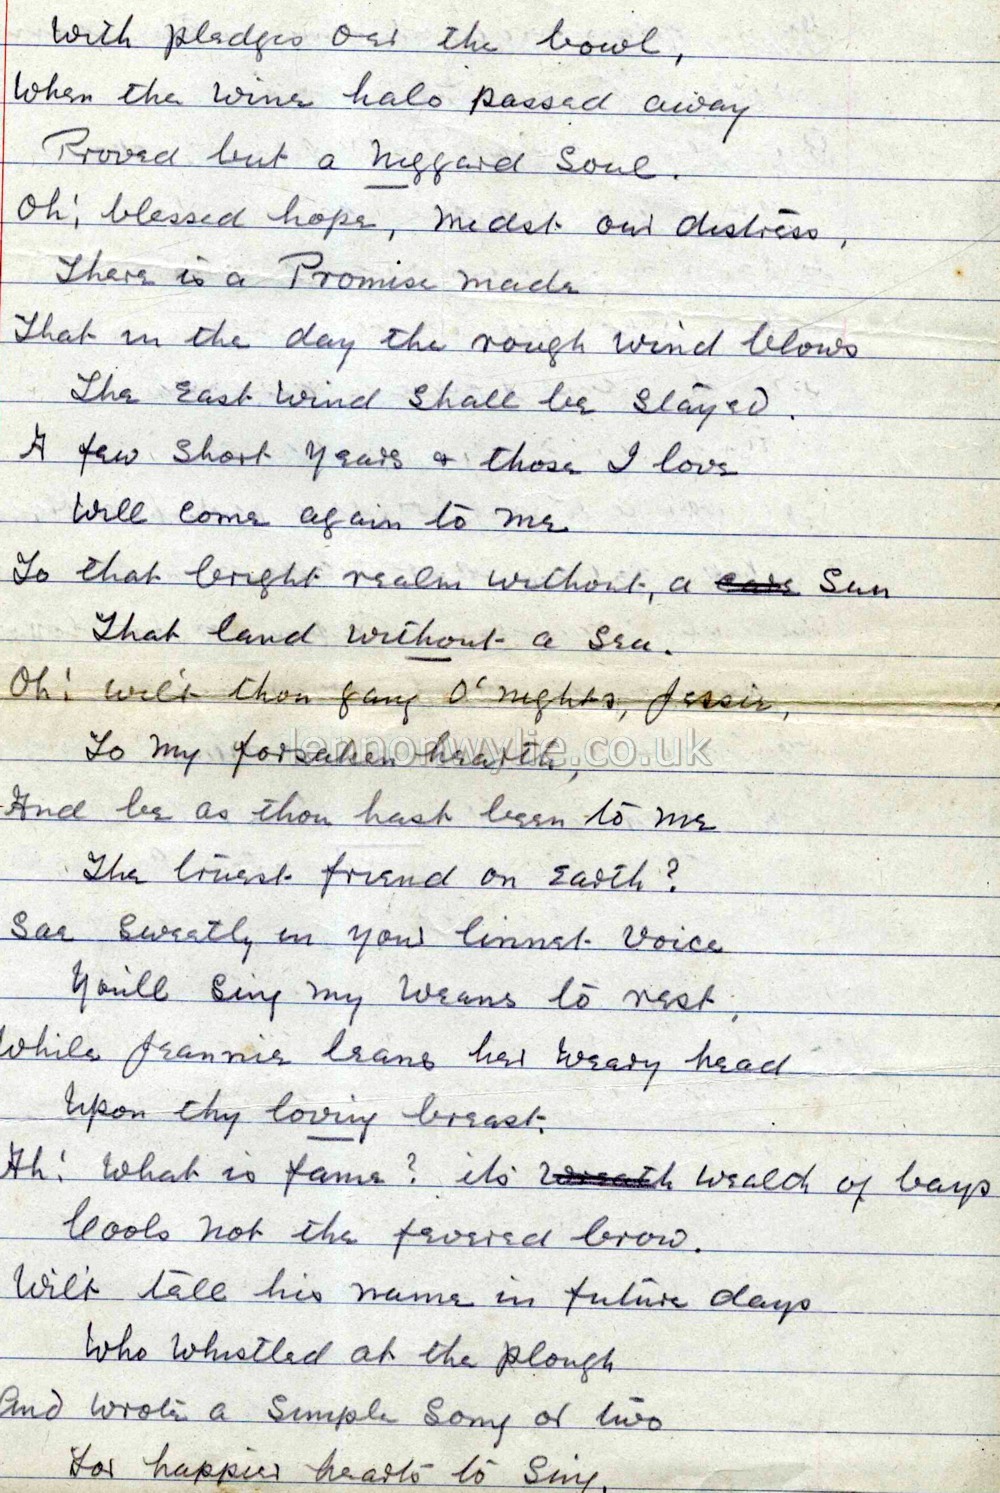 With pledges oer the bowl,
When the wine halo passed away
Proved but a niggard Soul.
Oh! blessed hope, midst our distress,
There is a Promise made
That in the day the rough Wind blows
The East Wind Shall be Stayed.
A few Short Years & those I love
Will Come again to me
To that bright realm without, a care Sun
That land without a Sea.
Oh! wilt thou gang O' nights, Jessie,
To my forsaken hearth,
And be as thou hast been to me
The truest friend on Earth?
Sae Sweetly in your linnet Voice
You'll Sing my Weans to rest,
While Jeannie leans her Weary head
Upon thy loving breast.
Ah! What is fame? its Wreath Wealth of bays
Cools not the fevered brow.
Wilt tell his name in future days
Who Whistled at the plough
And Wrote a Simple Song or two
For happier hearts to Sing.
lennonwylie.co.uk